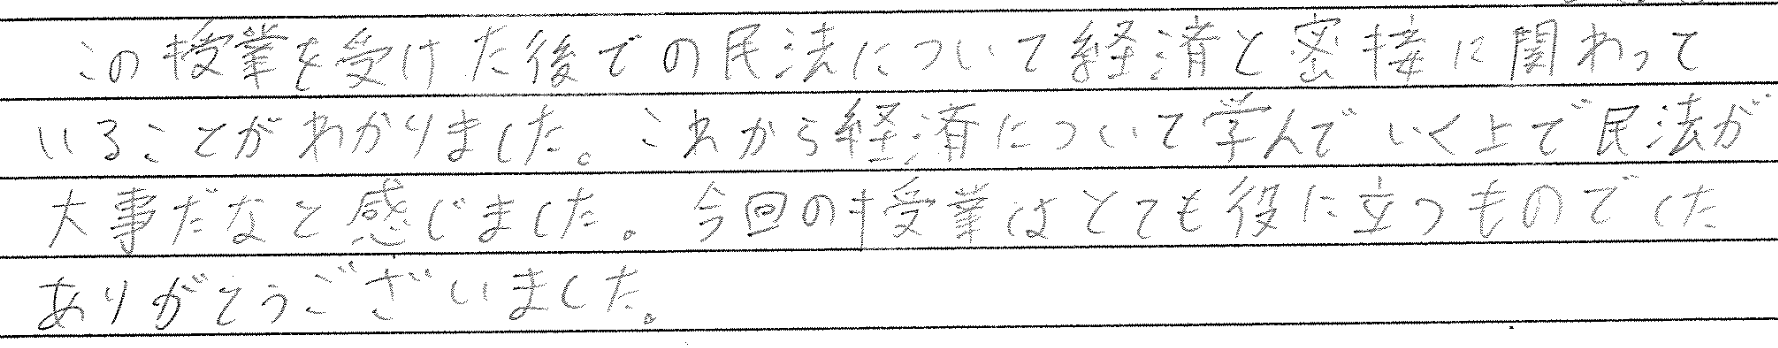 この授業を受けた後での民法について経済と密接に関わって
いることがわかりました。これから経済について学んでいく上で民法が
大事だなと感じました。今回の授業はとても役に立つものでした
ありがとうございました。